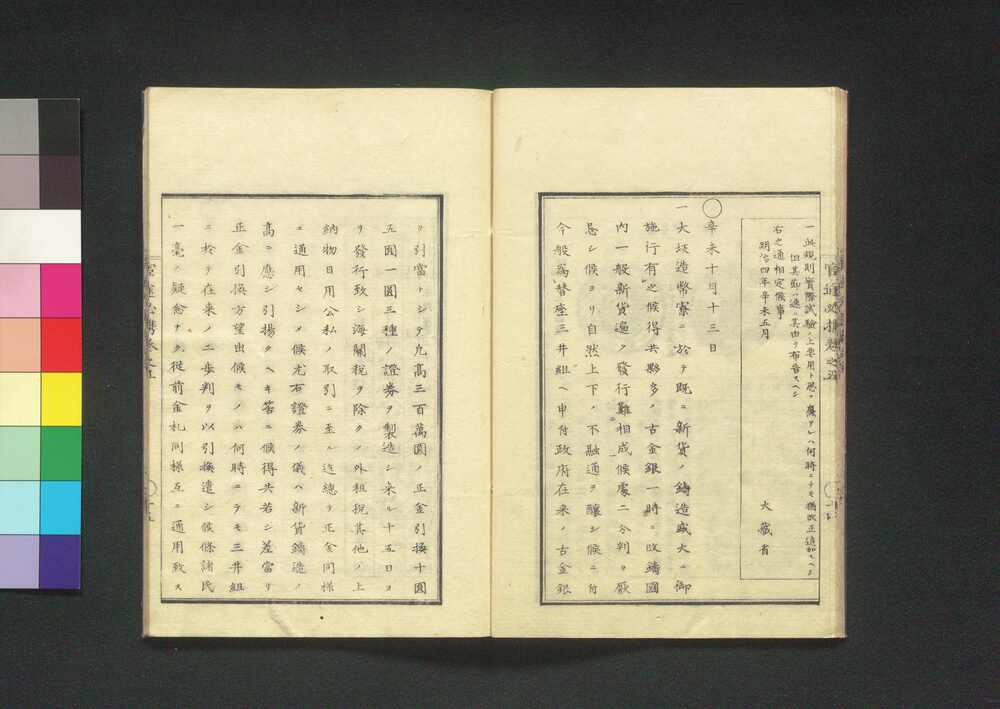 一此規則實際試驗ノ上要用ト思フ廉アレハ何時ニテモ猶改正追加スヘシ
但其節ハ速ニ其由ヲ布告スヘシ
右之通相定候事
明治四年辛未五月
大藏省
○
辛未十月十三日
一大坂造幣寮ニ於テ既ニ新貨ノ鑄造盛大ニ御
施行有之候得共夥多ノ古金銀一時ニ改鑄國
内一般新貨遍ク發行難相成候處二分判ヲ厭
忌シ候ヨリ自然上下ノ不融通ヲ釀シ候ニ付
今般爲替座三井組ヘ申付政府在來ノ古金銀
ヲ引當トシテ凡高三百萬圓ノ正金引換十圓
五圓一圓三種ノ證券ヲ製造シ來ル十五日ヨ
リ發行致シ海關税ヲ除クノ外租税其他ノ上
納物日用公私ノ取引ニ至ル迄總テ正金同樣
ニ通用セシメ候尤右證券ノ儀ハ新貨鑄造ノ
高ニ應シ引揚クヘキ筈ニ候得共若シ差當リ
正金引換方望出候モノハ何時ニテモ三井組
ニ於テ在來ノ二歩判ヲ以引換遣シ候條諸民
一毫ノ疑念ナク從前金札同樣互ニ通用致ス